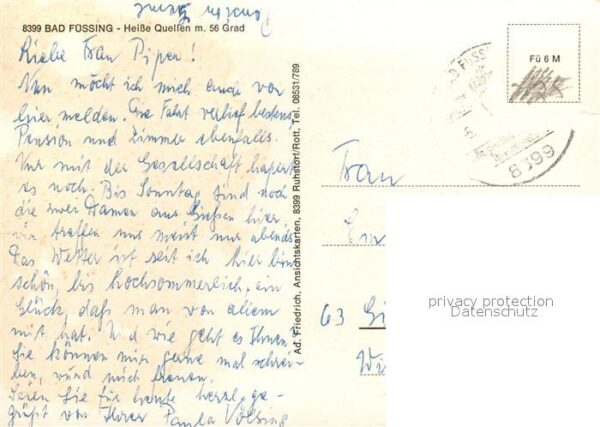 Pension Heinz
8399 BAD FÜSSING - Heiße Quellen m. 56 Grad
Liebe Frau Piper!
Nun möcht ich mich auch von
hier melden. Die Fahrt verlief bestens,
Pension und Zimmer ebenfalls.
Nur mit der Gesellschaft hapert
es noch. Bis Sonntag sind noch
die zwei Damen aus Gießen hier
wir treffen uns meist nur abends
Das Wetter ist seit ich hier bin
schön, bis hochsommerlich, ein
Glück, daß man von allem
mit hat. Und wie geht es Ihnen?
Sie können mir gerne mal schrei-
ben, würd mich freuen.
Seien Sie für heute herzl. ge-
grüßt von Ihrer Paula Völsing
Ad. Friedrich, Ansichtskarten, 8399 Ruhstorf/Rott, Tel. 08531/789
Fü 6 M
BAD FÜSS
8399
Frau
Em
63 Gi
Wi
privacy protection
Datenschutz